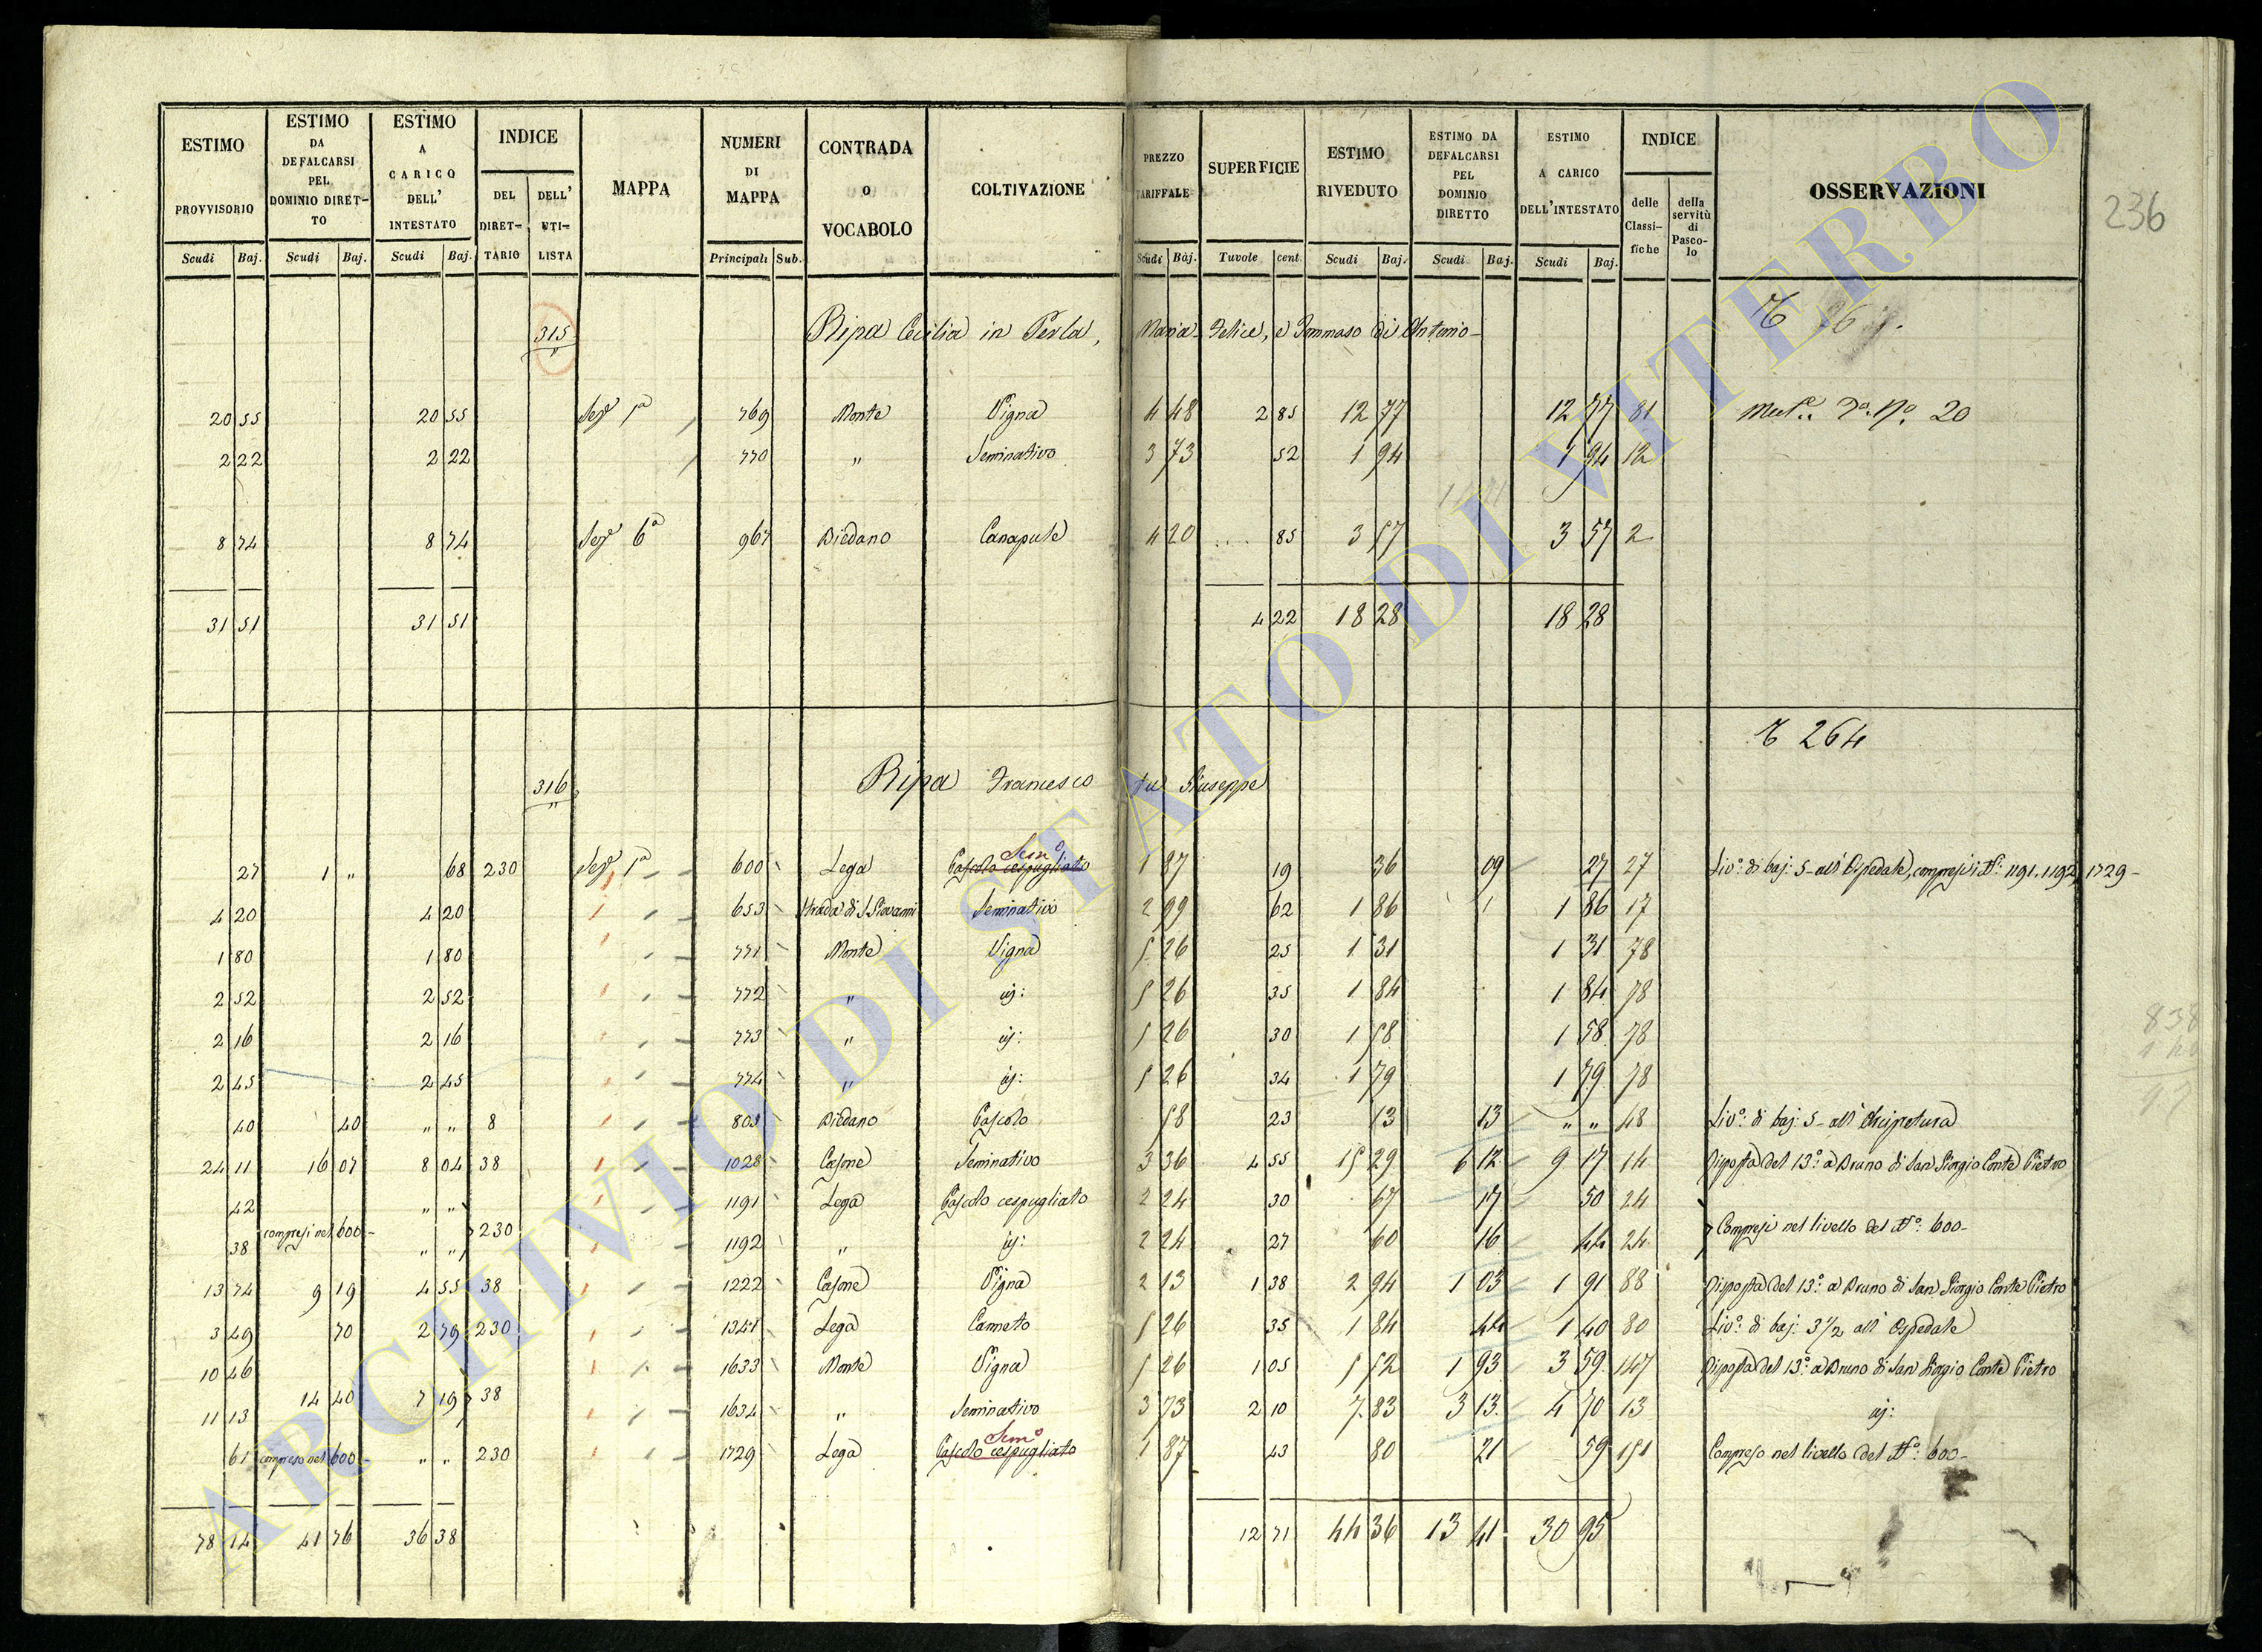 ESTIMO PROVVISORIO Scudi Baj.
ESTIMO DA DEFALCARSI PEL DOMINIO DIRET-TO Scudi Baj.
ESTIMO A CARICO DELL' INTESTATO Scudi Baj.
INDICE DEL DIRET-TARIO DELL' UTI-LISTA
MAPPA
NUMERI DI MAPPA Principali Sub.
CONTRADA O VOCABOLO
COLTIVAZIONE
PREZZO TARIFFALE Scudi Baj.
SUPERFICIE Tavole cent
ESTIMO RIVEDUTO Scudi Baj.
ESTIMO DA DEFALCARSI PEL DOMINIO DIRETTO Scudi Baj.
ESTIMO A CARICO DELL'INTESTATO Scudi Baj.
INDICE delle Classi-fiche della servitù di Pasco-lo
OSSERVAZIONI
236
315 Ripa Cecilia in Perla, Maria Felice, e Tommaso di Antonio
20 55 20 55 Sez.e 1a 769 Monte Vigna 4 48 2 85 12 77 12 77 81 20
2 22 2 22 770 " Seminativo 3 73 52 1 94 1 94 12
8 74 8 74 Sez.e 6a 967 Biedano Canapule 4 20 85 3 57 3 57 2
31 51 31 51 4 22 18 28 18 28
264
316 Ripa Francesco fu Giuseppe
27 1 " 68 230 Sez.e 1a 600 Lega Pascolo cespugliato Sem.o 1 87 19 36 09 27 27 Liv.o di baj: 5 all'Ospedale, compresi i N.i 1191. 1192, 1729
4 20 4 20 653 Strada di S. Giovanni Seminativo 2 99 62 1 86 1 86 17
1 80 1 80 771 Monte Vigna 5 26 25 1 31 1 31 78
2 52 2 52 772 " id: 5 26 35 1 84 1 84 78
2 16 2 16 773 " id: 5 26 30 1 58 1 58 78
2 45 2 45 774 " id: 5 26 34 1 79 1 79 78
40 40 " " 8 803 Biedano Pascolo 58 23 13 13 " " 48 Liv.o di baj: 5 all'Arcipretura
24 11 16 07 8 04 38 1028 Casone Seminativo 3 36 4 55 15 29 6 12 9 17 14 Risposta del 13.o a Bruno di San Giorgio Conte Pietro
42 " " 1191 Lega Pascolo cespugliato 2 24 30 67 17 50 24
compresi nel 600 230 Compresi nel livello del N.o 600
38 " " 1192 " id: 2 24 27 60 16 44 24
13 74 9 19 4 55 38 1222 Casone Vigna 2 13 1 38 2 94 1 03 1 91 88 Risposta del 13.o a Bruno di San Giorgio Conte Pietro
3 49 70 2 79 230 1341 Lega Canneto 5 26 35 1 84 44 1 40 80 Liv.o di baj: 3 1/2 all'Ospedale
10 46 1633 Monte Vigna 5 26 1 05 5 52 1 93 3 59 147 Risposta del 13.o a Bruno di San Giorgio Conte Pietro
14 40 7 19 38
11 13 1634 " Seminativo 3 73 2 10 7 83 3 13 4 70 13 id:
61 compreso nel 600 " " 230 1729 Lega Pascolo cespugliato Sem.o 1 87 43 80 21 59 151 Compreso nel livello del N.o 600
78 14 41 76 36 38 12 71 44 36 13 41 30 95
838
ARCHIVIO DI STATO DI VITERBO